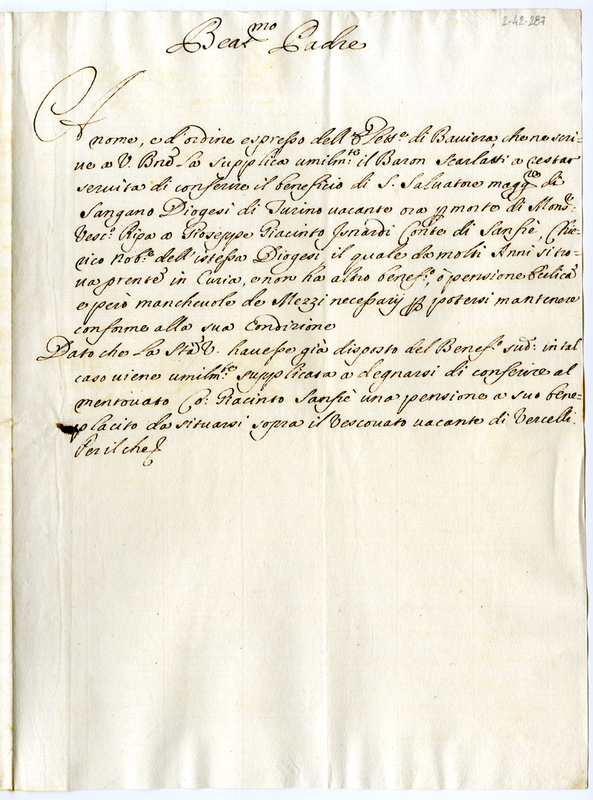 2-42-287
Beat.mo Padre
A nome, e d'ordine espresso dell' di Baviera, che ne scri=
ve a V. Bne. La supplica umilm.te il Baron Scarlatti a restar
servita di conferire il beneficio di S. Salvatore magg.re di
Sangano Diogesi di Turino vacante ora p morte di Mons.r
Vesc.o Ripa a Gioseppe Giacinto Isnardi Conte di Sanfrè, Chie=
rico nob.e dell' istessa Diogesi, il quale da molti Anni si tro=
va prente in Curia, e non ha altro benef.o, ò pensione
e però manchevole de Mezzi necessarij p potersi mantenere
conforme alla sua Condizione
Dato che La Sta V. havesse già disposto del Benef.o sud.o in tal
caso viene umilm.te supplicata a degnarsi di conferire al
mentovato Co: Giacinto Sanfrè una pensione a suo bene=
placito da situarsi sopra il Vescovato vacante di Vercelli.
Per il che